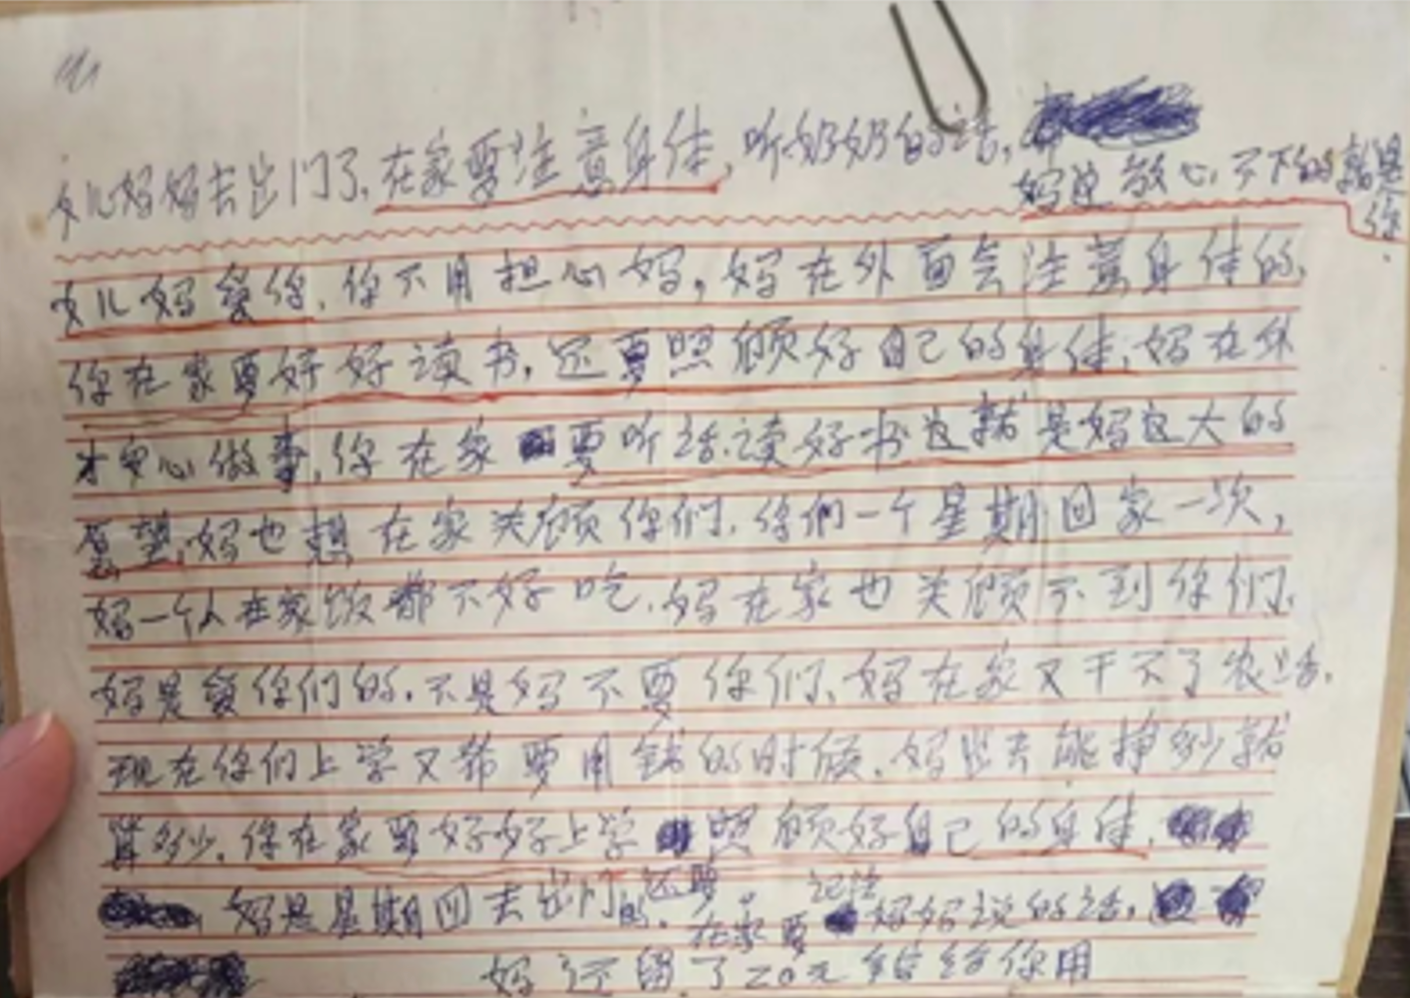 女儿妈妈去出门了.在家要注意身体,听奶奶的话,
妈这放心.不下的就是
你
女儿妈爱你.你不用担心妈,妈在外面会注意身体的,
你在家要好好读书,还要照顾好自己的身体,妈在外
才安心做事,你在家要听话.读好书这就是妈这大的
愿望.妈也想在家关顾你们.你们一个星期回家一次,
妈一个人在家饭都不好吃.妈在家也关顾不到你们.
妈是爱你们的.不是妈不要你们、妈在家又干不了农活.
现在你们上学又希要用钱的时候.妈出去能挣多少就
算多少.你在家要好好上学照顾好自己的身体.
妈是星期四去出门的.还要
在家要记住妈妈说的话,
妈还留了20元给你用